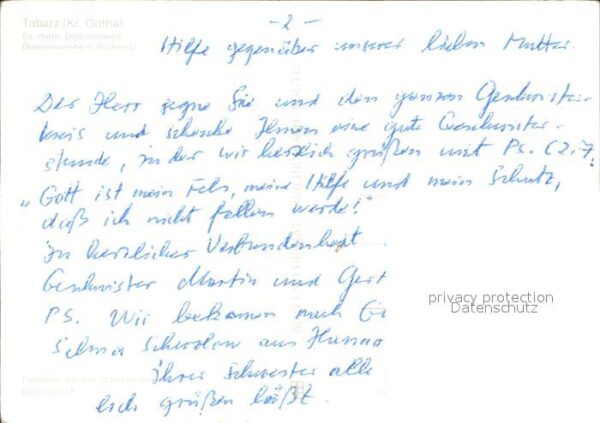 Tabarz (Kr. Gotha)
Ev.-meth. Diakoniewerk
Diakonissenheim Bethanien
- 2 -
Hilfe gegenüber unserer lieben Mutter.
Der Herr segne Sie und den ganzen Geschwister-
kreis und schenke Ihnen eine gute Geschwister-
stunde, in der wir herzlich grüßen mit Ps. 62.7.
„Gott ist mein Fels, meine Hilfe und mein Schutz,
daß ich nicht fallen werde!"
In herzlicher Verbundenheit
Geschwister Martin und Gert
PS. Wir bekamen noch
Selma aus
ihrer Schwester alle
lich grüßen läßt.
privacy protection
Datenschutz